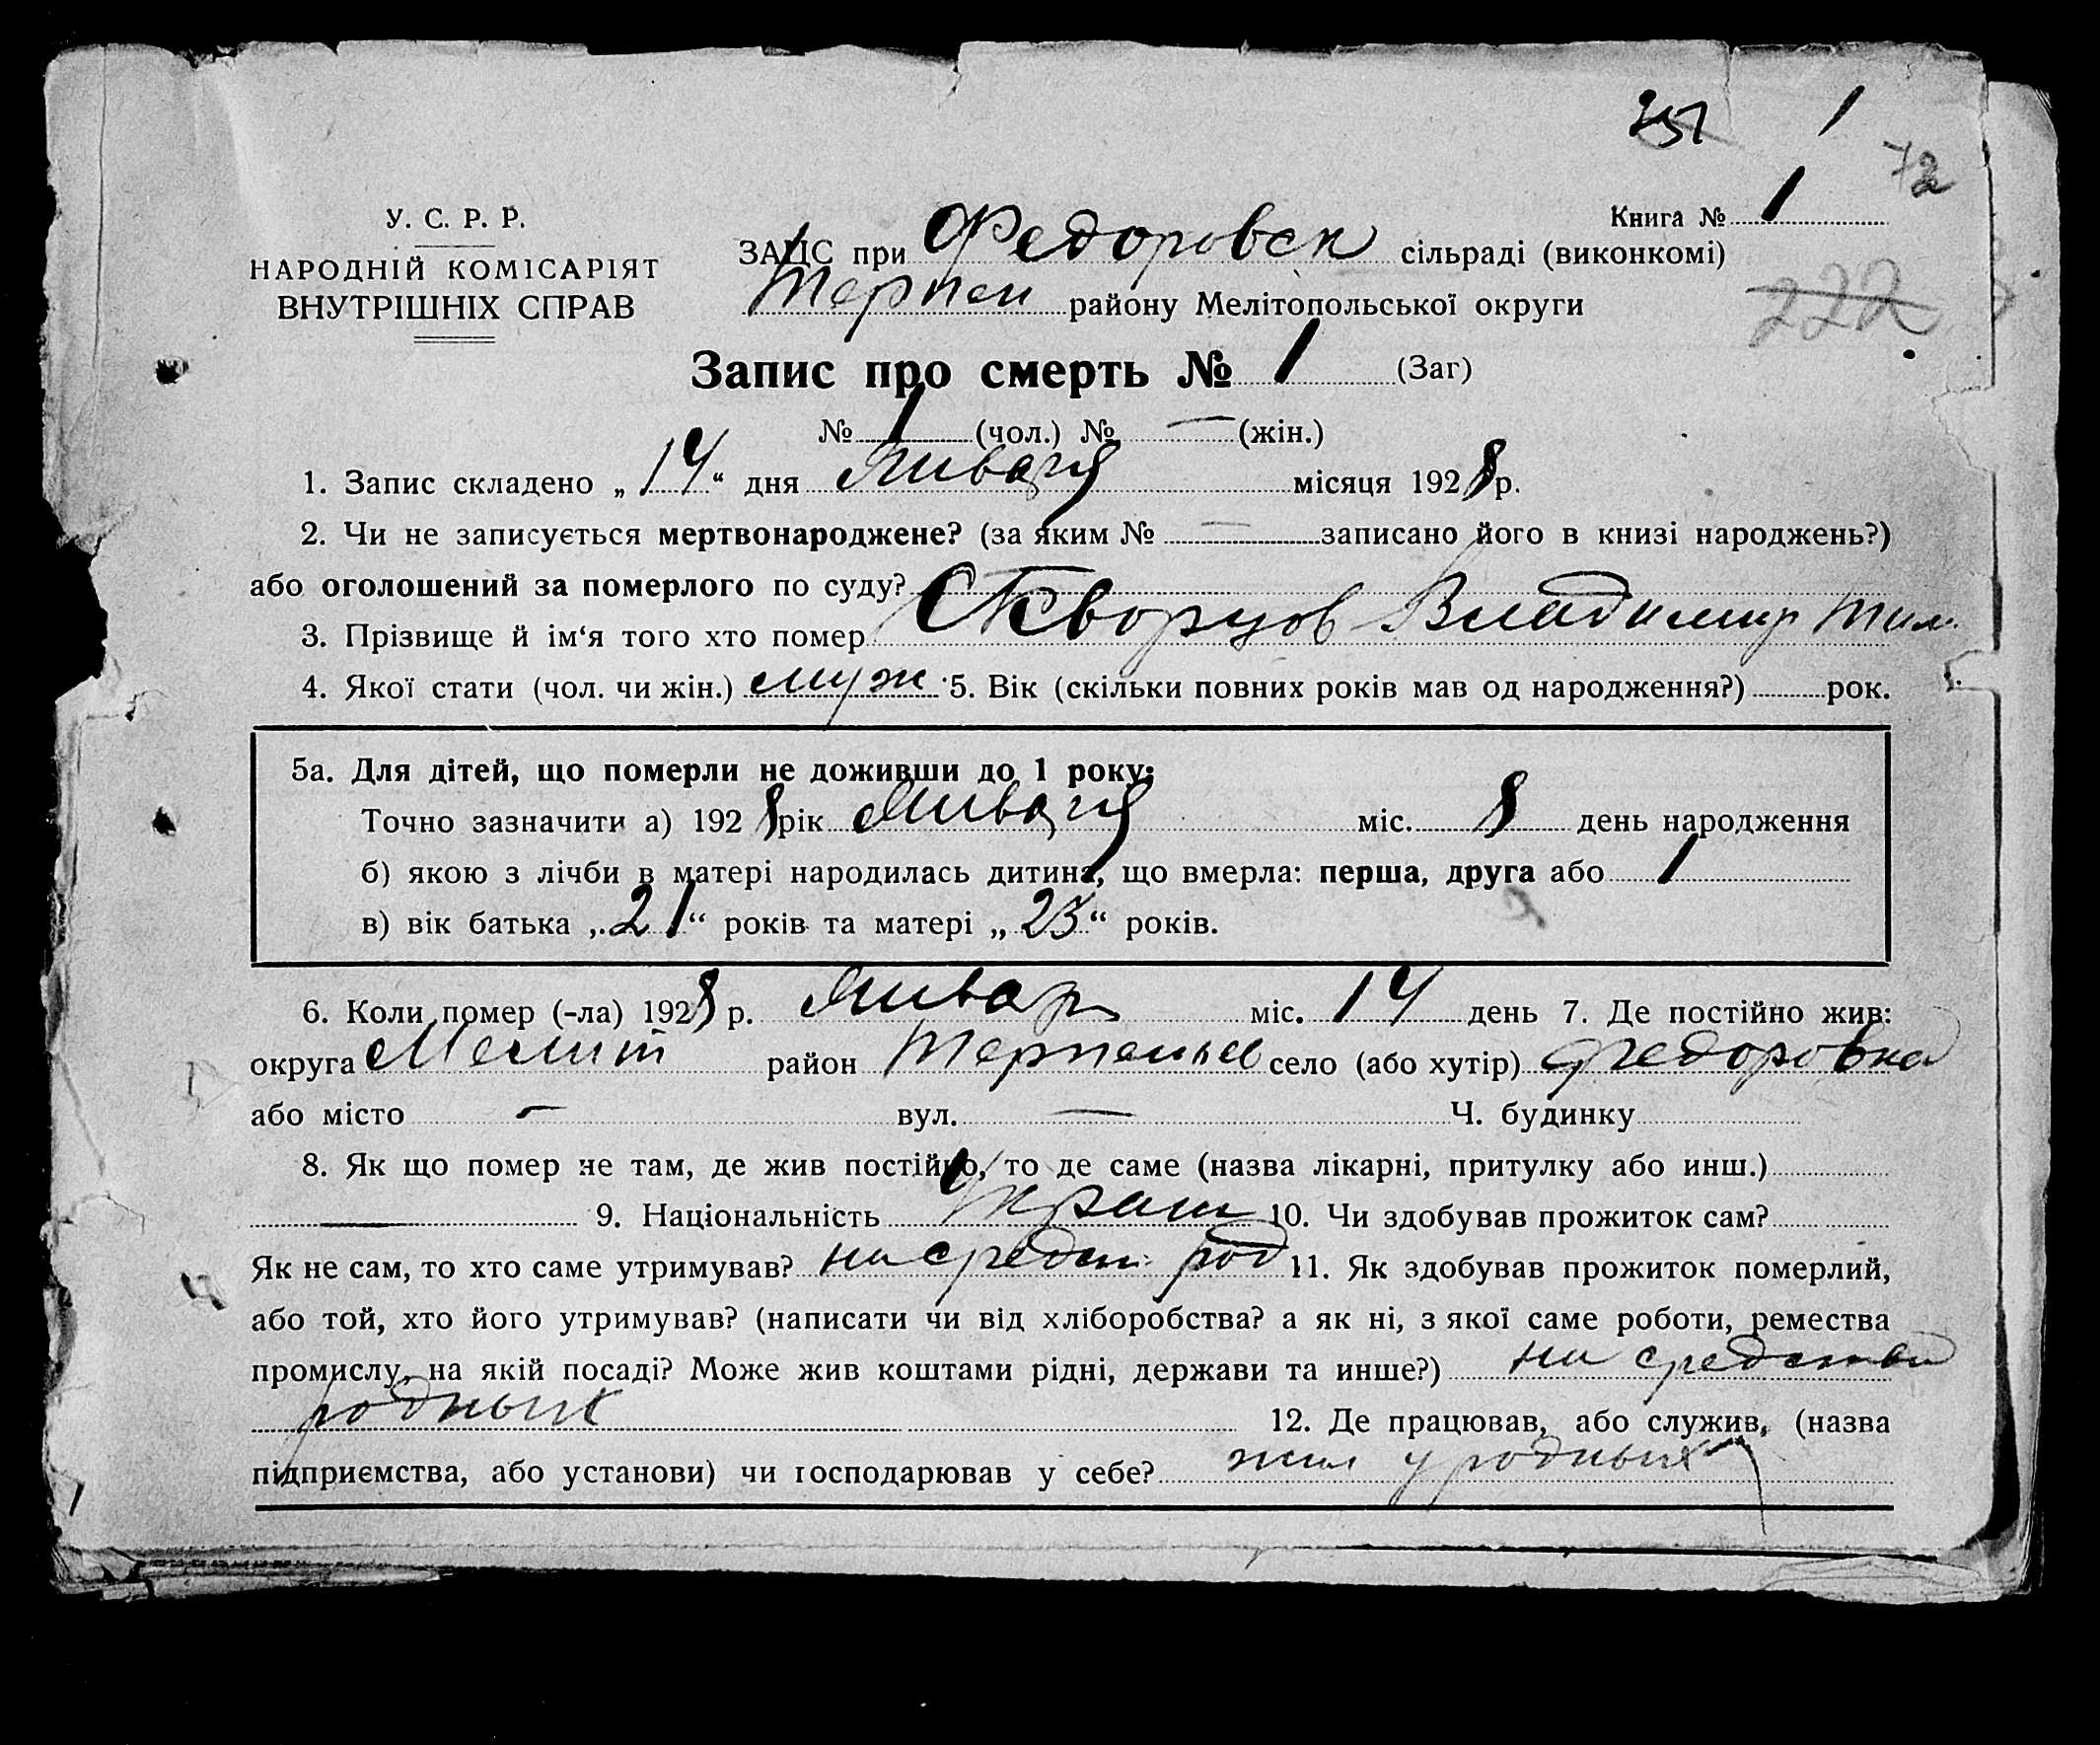 1
72
У. С. Р. Р.
НАРОДНІЙ КОМІСАРІЯТ
ВНУТРІШНІХ СПРАВ
Книга № 1
ЗАЦС при Федоровск сільраді (виконкомі)
Терпен району Мелітопольської округи
222
Запис про смерть № 1 (Заг)
№ 1 (чол.) № — (жін.)
1. Запис складено „14“ дня Января місяця 1928 р.
2. Чи не записується мертвонароджене? (за яким № — записано його в книзі народжень?)
або оголошений за померлого по суду?
3. Прізвище й ім‘я того хто помер Скворцов Владимир Тим.
4. Якої стати (чол. чи жін.) муж 5. Вік (скільки повних років мав од народження?) рок.
5а. Для дітей, що померли не доживши до 1 року:
Точно зазначити а) 1928 рік Января міс. 8 день народження
б) якою з лічби в матері народилась дитина, що вмерла: перша, друга або 1
в) вік батька „21“ років та матері „23“ років.
6. Коли помер (-ла) 1928 р. Январ міс. 14 день 7. Де постійно жив:
округа Мелит район Терпеньев село (або хутір) Федоровка
або місто — вул. — Ч. будинку
8. Як що помер не там, де жив постійно, то де саме (назва лікарні, притулку або инш.)
— 9. Національність Украин 10. Чи здобував прожиток сам?
Як не сам, то хто саме утримував? на средств род 11. Як здобував прожиток померлий,
або той, хто його утримував? (написати чи від хліборобства? а як ні, з якої саме роботи, ремества
промислу, на якій посаді? Може жив коштами рідні, держави та инше?) на средства
родных 12. Де працював, або служив, (назва
підприємства, або установи) чи господарював у себе? жил у родных